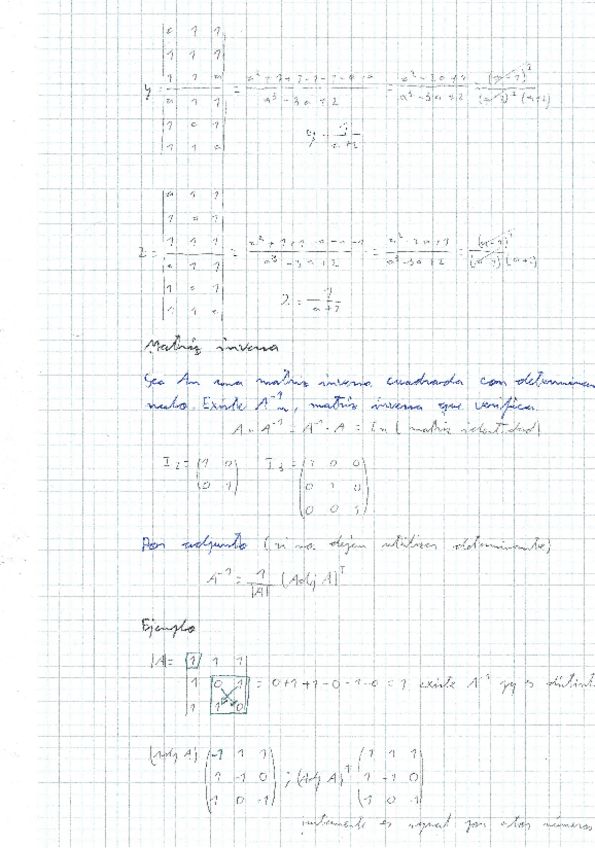 |a 1 1|
|1 1 1|
y = |1 1 a| / |a 1 1| |1 a 1| |1 1 a| = a²+1+1-1-a-a / a³-3a+2 = a²-2a+1 / a³-3a+2 = (a-1)² / (a-1)²(a+2)
y = 1 / a+2
|a 1 1|
|1 a 1|
z = |1 1 1| / |a 1 1| |1 a 1| |1 1 a| = a²+1+1-a-a-1 / a³-3a+2 = a²-2a+1 / a³-3a+2 = (a-1)² / (a-1)²(a+2)
z = 1 / a+2
Matriz inversa
Sea An una matriz inversa cuadrada con determinan
nulo. Existe A⁻¹n, matriz inversa que verifica.
A·A⁻¹ = A⁻¹·A = In (matriz identidad)
I₂ = (1 0) I₃ = (1 0 0)
(0 1) (0 1 0)
(0 0 1)
Por adjunto (si no dejen utilizar determinante)
A⁻¹ = 1/|A| (Adj A)ᵀ
Ejemplo
|A| = |1 1 1|
|1 0 1| = 0+1+1-0-1-0 = 1 existe A⁻¹ pq es distint
|1 1 0|
(Adj A) (-1 1 1) ; (Adj A)ᵀ (1 1 1)
(1 -1 0) (1 -1 0)
(1 0 -1) (1 0 -1)
justamente es igual por otos números